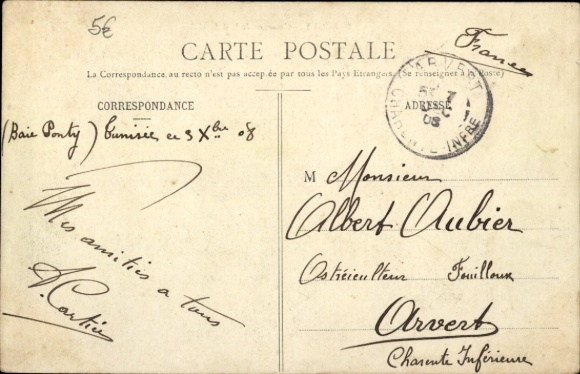 5€
France
CARTE POSTALE
La Correspondance au recto n'est pas acceptée par tous les Pays Etrangers. (Se renseigner à la Poste)
CORRESPONDANCE
ADRESSE
ARVERT
7
08
CHARENTE-INFRE
(Baie Ponty) Tunisie ce 3 Xbre 08
Mes amitiés a tous
Cartier
M Monsieur
Albert Aubier
Ostréiculteur Fouilloux
Arvert
Charente Inférieure